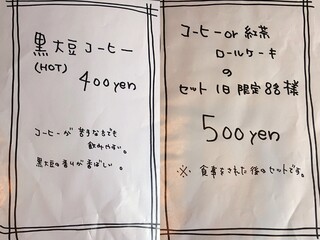 黒大豆コーヒー
(HOT)
400yen
コーヒーが苦手な方でも
飲みやすい。
黒大豆の香りが香ばしい。
コーヒー or 紅茶
ロールケーキ
の
セット 1日限定8名様
500yen
※ 食事をされた後のセットです。